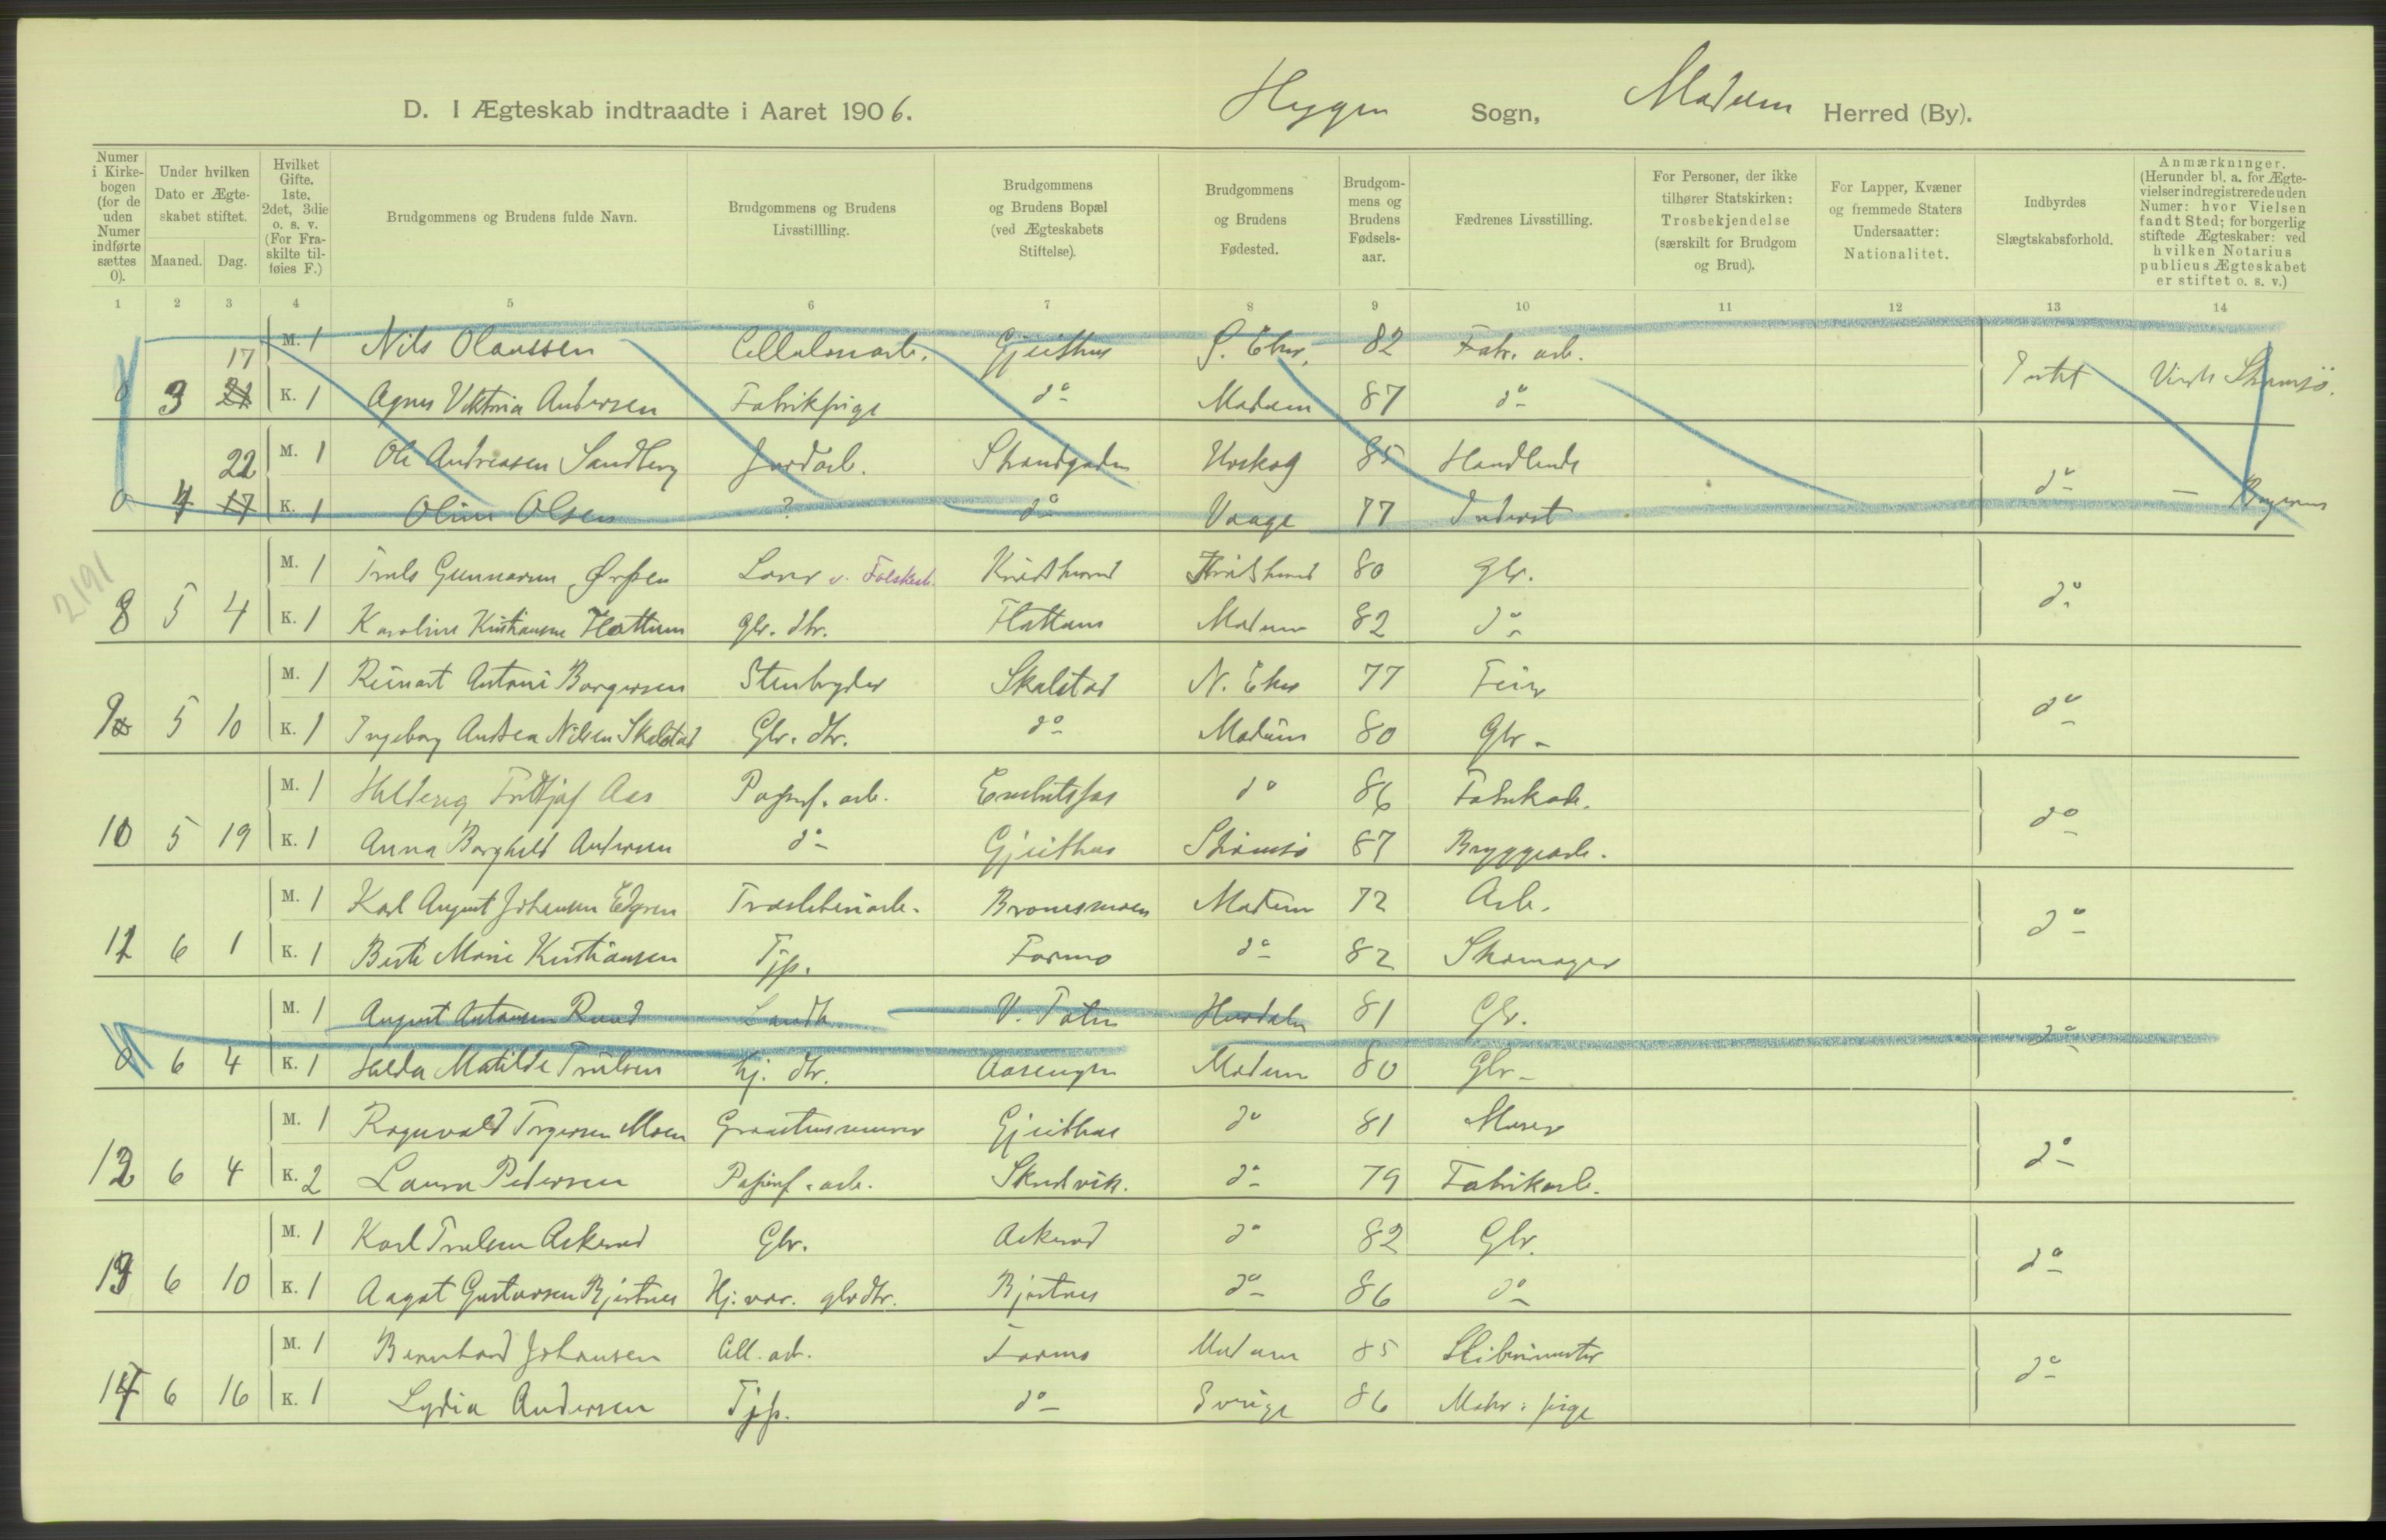 D. I Ægteskab indtraadte i Aaret 1906. Heggen Sogn, Modum Herred (By).
Numer i Kirkebogen (for de uden Numer indførte sættes 0).
Under hvilken Dato er Ægteskabet stiftet.
Maaned. Dag.
Hvilket Gifte. 1ste, 2det, 3die o. s. v. (For Fraskilte tilføies F.)
Brudgommens og Brudens fulde Navn.
Brudgommens og Brudens Livsstillling.
Brudgommens og Brudens Bopæl (ved Ægteskabets Stiftelse).
Brudgommens og Brudens Fødested.
Brudgommens og Brudens Fødselsaar.
Fædrenes Livsstilling.
For Personer, der ikke tilhører Statskirken: Trosbekjendelse (særskilt for Brudgom og Brud).
For Lapper, Kvæner og fremmede Staters Undersaatter: Nationalitet.
Indbyrdes Slægtskabsforhold.
Anmærkninger. (Herunder bl. a. for Ægtevielser indregistrerede uden Numer: hvor Vielsen fandt Sted; for borgerlig stiftede Ægteskaber: ved hvilken Notarius publicus Ægteskabet er stiftet o. s. v.)
1 2 3 4 5 6 7 8 9 10 11 12 13 14
17 M. 1 Nils Olaussen Cellulosearb. Gjeithus Ø. Eker 82 Fabr. arb.
0 3 21 K. 1 Agnes Viktoria Andersen Fabrikpige do Modum 87 do Intet Viede Strømsø.
22 M. 1 Ole Andreasen Sandberg Jordarb. Strandgaden Urskog 85 Handlende
0 4 17 K. 1 Oline Olsen ? do Vaage 77 Inderst do —
2191
M. 1 Truls Gunnarsen Ørpen Lærer v. Folkesk. Krødsherred Krødsherred 80 Gbr.
8 5 4 K. 1 Karoline Kristiansen Hottum Gbr. dtr. Hottum Modum 82 do do
M. 1 Reinart Antoni Borgersen Stenbryder Skalstad N. Eker 77 Feier
9 5 10 K. 1 Ingeborg Andrea Nilsen Skalstad Gbr. dtr. do Modum 80 Gbr do
M. 1 Fridtjof Aas Papirf. arb. do 86 Fabrikarb.
10 5 19 K. 1 Anna Borghild Andersen do Gjeithus Strømsø 87 Bryggearb. do
M. 1 Karl August Johansen Edgren Træsliberiarb. Bronesmoen Modum 72 Arb.
11 6 1 K. 1 Berte Marie Kristiansen Tjp. Formo do 82 Skomager do
M. 1 August Antonsen Rund Landh. V. Toten Hurdalen 81 Gbr.
0 6 4 K. 1 Hilda Matilde Trulsen Hj. dtr. Aasengen Modum 80 Gbr do
M. 1 Ragnvald Torgersen Moen Graastensmurer Gjeithus do 81 Murer
12 6 4 K. 2 Laura Pedersen Papirf. arb. Skredvik. do 79 Fabrikarb. do
M. 1 Karl Trulsen Askerud Gbr. Askerud do 82 Gbr.
13 6 10 K. 1 Aagot Gustavsen Bjertnes Hj. vær. gbrdtr. Bjertnes do 86 do do
M. 1 Bernhard Johansen Cell. arb. Formo Modum 85 Sliberimester
14 6 16 K. 1 Lydia Andersen Tjp. do Sverige 86 pige do